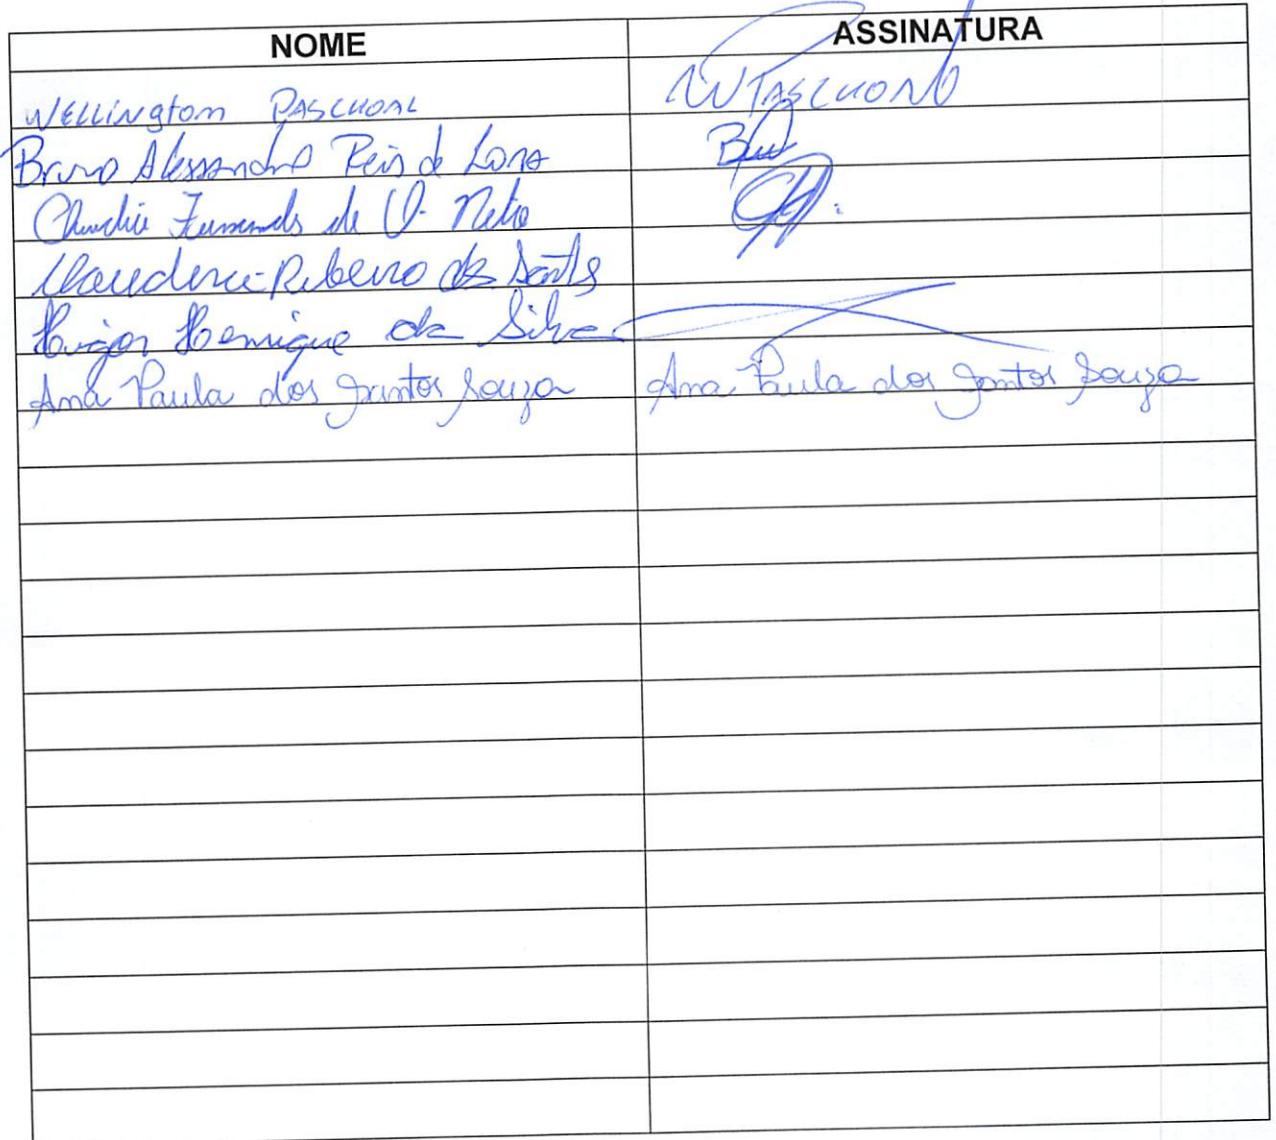 NOME ASSINATURA
WELLINGTOM PASCHOAL WPASCHOAL
Bruno Alessandro Reis de
Fernandes de O. Neto
Ribeiro dos Santos
Henrique da Silva
Ana Paula dos Santos Souza Ana Paula dos Santos Souza